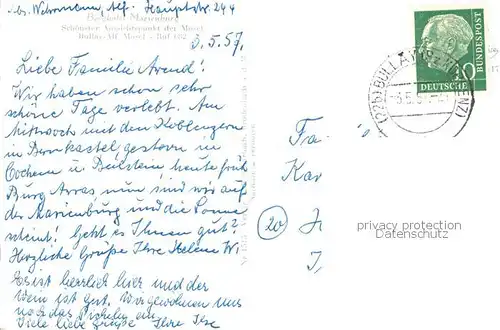 Abs. Wehrmann, Alf. Hauptstr. 244
Berghotel Marienburg
Schönster Aussichtspunkt der Mosel
Bullay-Alf Mosel - Ruf 682
3.5.57.
Liebe Familie Arend!
Wir haben schon sehr
schöne Tage verlebt. Am
Mittwoch mit den Koblenzern
in Bernkastel gestern in
Cochem u Beilstein, heute früh
Burg Arras nun sind wir auf
der Marienburg und die Sonne
scheint! Geht es Ihnen gut?
Herzliche Grüße Ihre Helene Wi
Es ist herrlich hier und der
Wein ist gut. Wir gewöhnen uns
noch das Picheln an
Viele liebe Grüße Ihre Ilse
DEUTSCHE
BUNDESPOST
10
BULLAY
Fa
Kar
20
privacy protection
Datenschutz